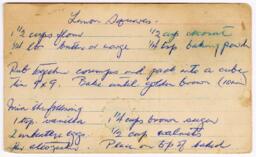 Lemon Squares
1 1/2 cups flour 1/2 cup coconut
1/4 lb butter or marge 1/4 tsp baking powder
Rub together crumps and pack into a cake
tin 9x9. Bake until golden brown (10min)
Mix the following
1 tsp. vanilla 1 1/4 cup brown sugar
2 eggs 1/2 cup walnuts
Mix altogether Place on top of baked